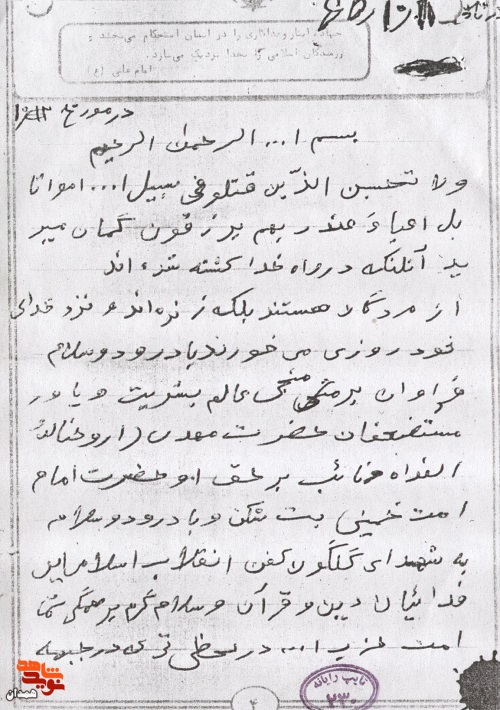 جهاد، ایثار و فداکاری را در انسان استحکام می‌بخشد و
رزمندگان اسلامی را بخدا نزدیک می‌سازد.
امام علی (ع)
در مورخ
بسم ا... الرحمن الرحیم
ولا تحسبن الذین قتلو فی سبیل ا... امواتا
بل احیاء عند ربهم یرزقون گمان مبر
ید آنانکه در راه خدا کشته شده اند
از مردگان هستند بلکه زنده اند و نزد خدای
خود روزی می خورند با درود و سلام
فراوان بر منجی عالم بشریت و یاور
مستضعفان حضرت مهدی (ارواحنالهُ
الفداه و نائب بر حق او حضرت امام
امت خمینی بت شکن و با درود و سلام
به شهدای گلگون کفن انقلاب اسلامی
فدائیان دین و قرآن و سلام گرم بر همگی شما
امت حزب ا... در که در جبهه
نوید شاهد
همدان
۴
تایپ رایانه
۲۳۰